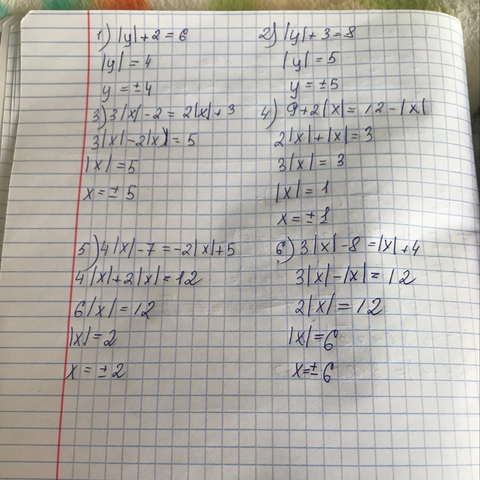 1) |y| + 2 = 6
|y| = 4
y = ±4
2) |y| + 3 = 8
|y| = 5
y = ±5
3) 3|x| - 2 = 2|x| + 3
3|x| - 2|x| = 5
|x| = 5
x = ± 5
4) 9 + 2|x| = 12 - |x|
2|x| + |x| = 3
3|x| = 3
|x| = 1
x = ±1
5) 4|x| - 7 = -2|x| + 5
4|x| + 2|x| = 12
6|x| = 12
|x| = 2
x = ± 2
6) 3|x| - 8 = |x| + 4
3|x| - |x| = 12
2|x| = 12
|x| = 6
x = ± 6